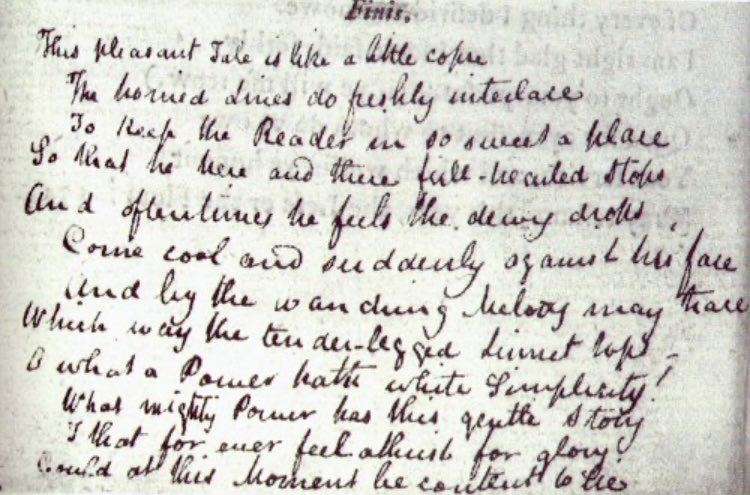 Finis.
This pleasant Tale is like a little copse
The honied Lines do freshly interlace
To keep the Reader in so sweet a place
So that he here and there full-hearted stops
And oftentimes he feels the dewy drops
Come cool and suddenly against his face
And by the wandring Melody may trace
Which way the tender-legged Linnet hops —
O what a Power hath white Simplicity!
What mighty Power has this gentle Story
I that for ever feel athirst for glory
Could at this Moment be content to lie